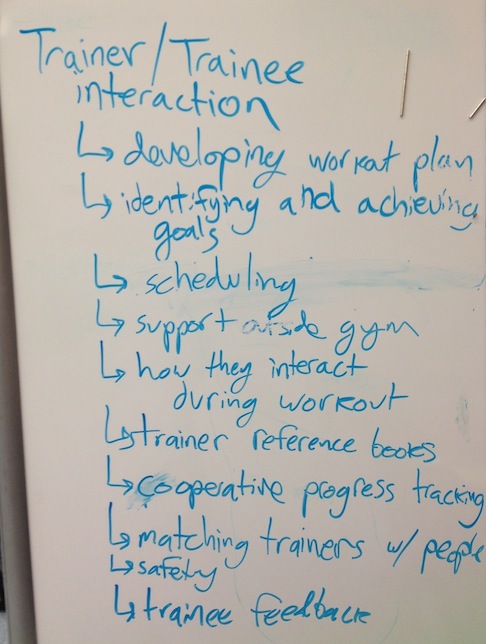 Trainer/Trainee
interaction
↳ developing workout plan
↳ identifying and achieving
goals
↳ scheduling
↳ support outside gym
↳ how they interact
during workout
↳ trainer reference books
↳ cooperative progress tracking
↳ matching trainers w/ people
↳ safety
↳ trainee feedback